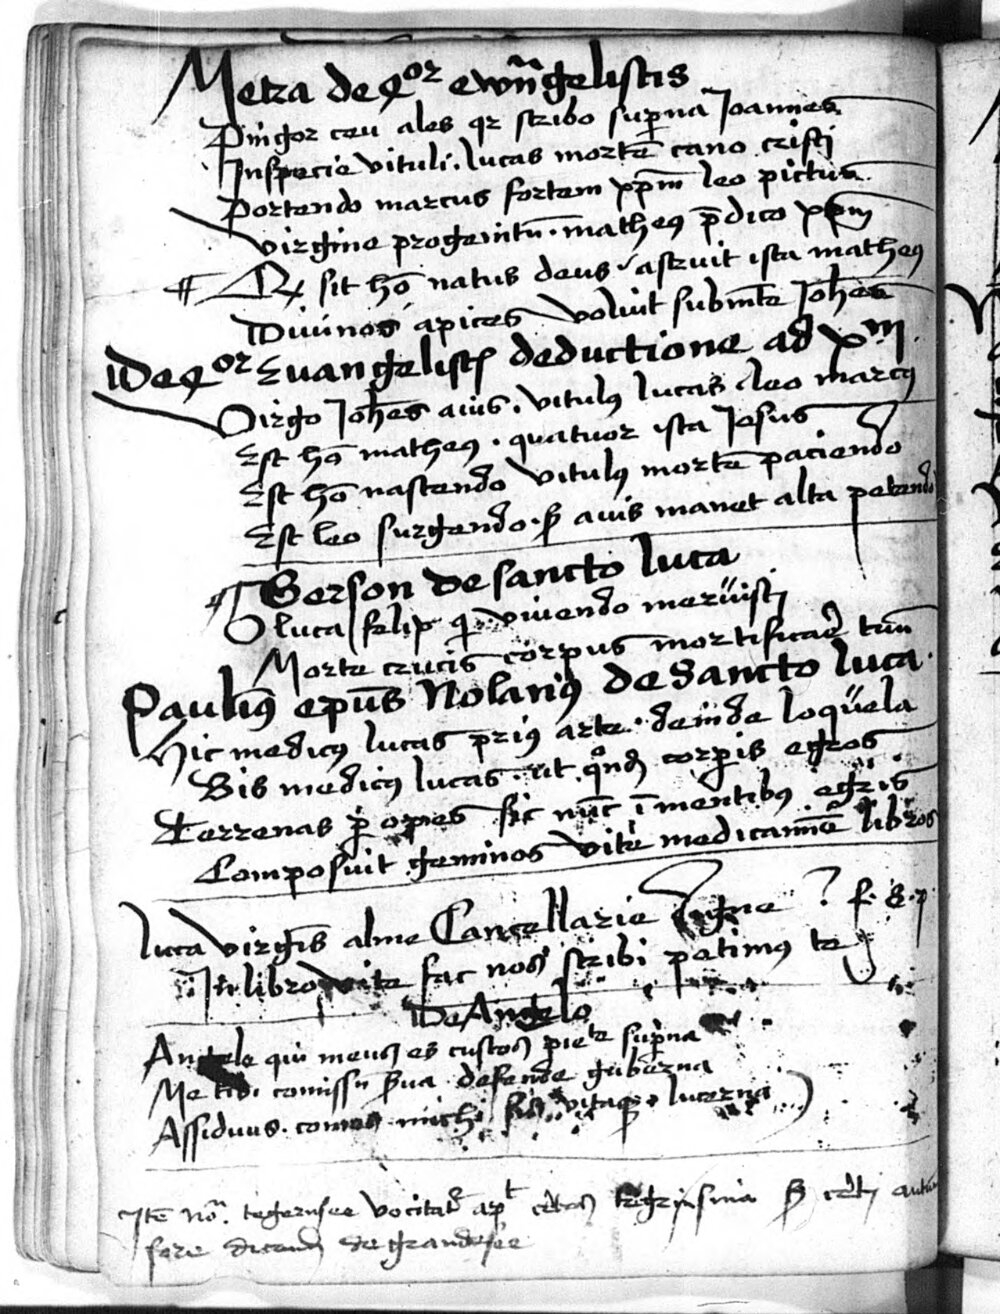 Metra de q̄or ewāngelistis
Pingor ceu ales qr scribo sup̄na Joannes
Inspecie vituli. lucas mortē cano cristi
Portendo marcus fortem xp̄m leo pictus.
Virgine progenitū. matheus p̄dico xp̄m
¶ Ex sit hō natus deus astruit ista matheus
Divinos apices voluit submīte Johēs
De q̄or Evangelist deductione ad xp̄m.
Virgo Johēs avis. vitulus lucas leo marcus
Est hō matheus. quatuor ista Jesus
Est hō nascendo vitulus mortē paciendo
Est leo surgendo. s̄ avis manet alta petendo
¶ Gerson de sancto luca
O luca felix q vivendo meruisti
Morte crucis corpus mortificare tuū
Paulin9 ep̄us Nolan9 de Sancto luca.
Hic medicus lucas prius arte. deinde loquela
Bis medicus lucas. ut q̄nd corporis egros
Terrenas p̄ opes sic nūc ī mentibus egris
Composuit geminos vite medicaminē libros
luca virgīs alme Cancellarie digne
In libro vite fac nos scribi petimus te
De Angelo
Angele qui meus es custos pietate sup̄na
Me tibi comissū s̄va defende gub̄erna
Assiduus. comes michi sis vitaque lucerna
Itē nō. tegernsee vocitat
fere dicend de grandesee